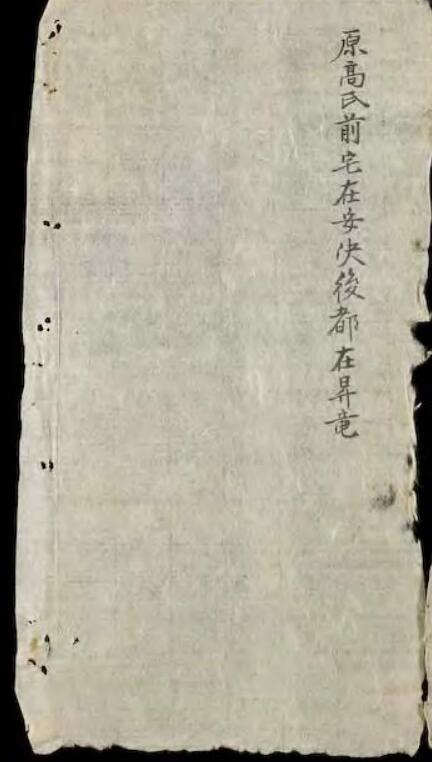 原高氏前宅在安决後都在昇竜